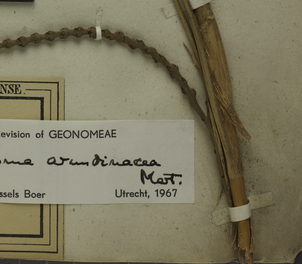 NSE.
evision of GEONOMEAE
oma arundinacea
Mart.
ssels Boer Utrecht, 1967